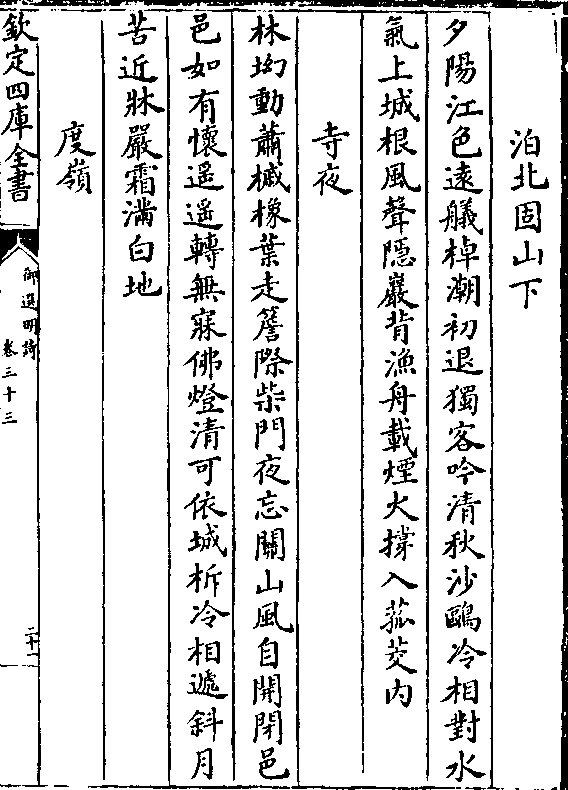 泊北固山下
夕陽江色遠艤棹潮初退獨客吟清秋沙鷗冷相對水
氣上城根風聲隱巖背漁舟載煙火撐入菰茭内
寺夜
林坳動蕭槭橡葉走簷際柴門夜忘關山風自開閉邑
邑如有懷遥遥轉無寐佛燈清可依城柝冷相遞斜月
苦近牀嚴霜滿白地
度嶺
欽定四庫全書
御選明詩
卷三十三
二十一